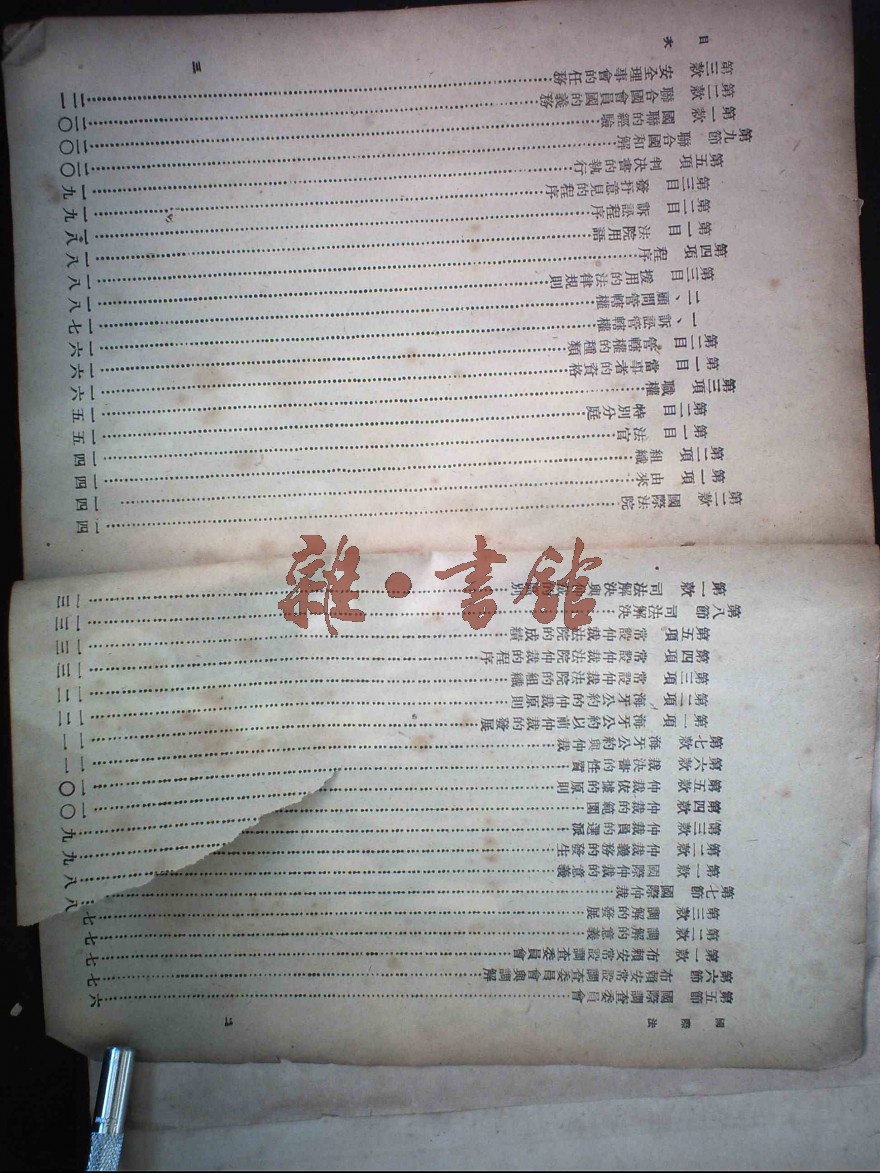 國際法
二
第五節 國際調查委員會……六
第六節 布賴安常設調查委員會與調解……七
第一款 布賴安常設調查委員會……七
第二款 調解的意義……七
第三款 調解的發展……七
第七節 國際仲裁……八
第一款 國際仲裁的意義……八
第二款 仲裁義務的發生……九
第三款 仲裁員的選派……九
第四款 仲裁的範圍……一〇
第五款 仲裁依據的原則……一〇
第六款 裁決書的性質……一一
第七款 海牙公約與仲裁……一一
第一項 海牙公約以前仲裁的發展……一一
第二項 海牙公約的仲裁原則……一二
第三項 常設仲裁法院的組織……一二
第四項 常設仲裁法院仲裁的程序……一三
第五項 常設仲裁法院的成績……一三
第八節 司法解決……一三
第一款 司法解決與仲裁的區別……一三
第二款 國際法院……一四
第一項 由來……一四
第二項 組織……一四
第一目 法官……一五
第二目 特別分庭……一五
第三項 職權……一六
第一目 當事者的資格……一六
第二目 管轄權的種類……一六
一、訴訟管轄權……一七
二、顧問管轄權……一八
第三目 援用的法律規則……一八
第四項 程序……一八
第一目 法院用語……一八
第二目 訴訟程序……一九
第三目 發抒意見的程序……一九
第五項 判決書的執行……二〇
第九節 聯合國和解……二〇
第一款 國聯的經驗……二〇
第二款 聯合國會員國的義務……二一
第三款 安全理事會的任務……二一
目次
三
雜·書館